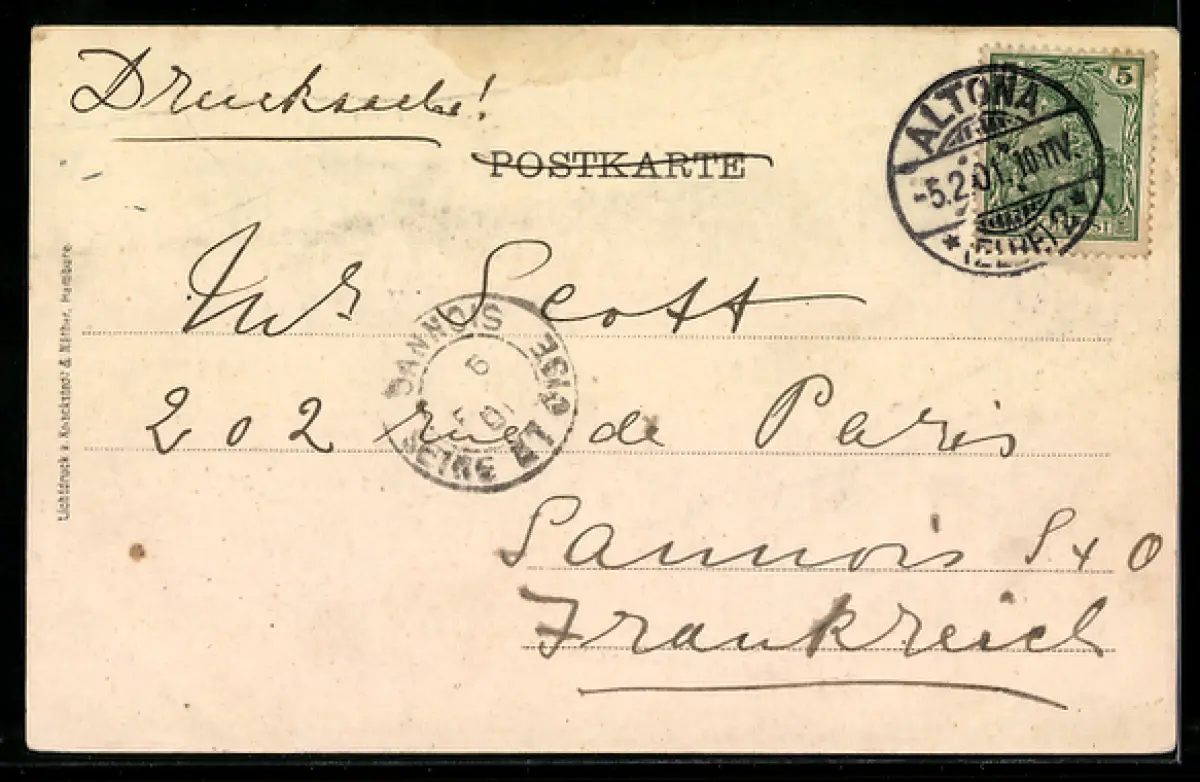 Drucksache!
POSTKARTE
5
ALTONA
-5.2.01. 10-11V.
* (ELBE) 2 *
Mr Scott
202 rue de Paris
Sannois S & O
Frankreich
SANNOIS
6
SEINE ET OISE
Lichtdruck v. Knackstedt & Näther, Hamburg.